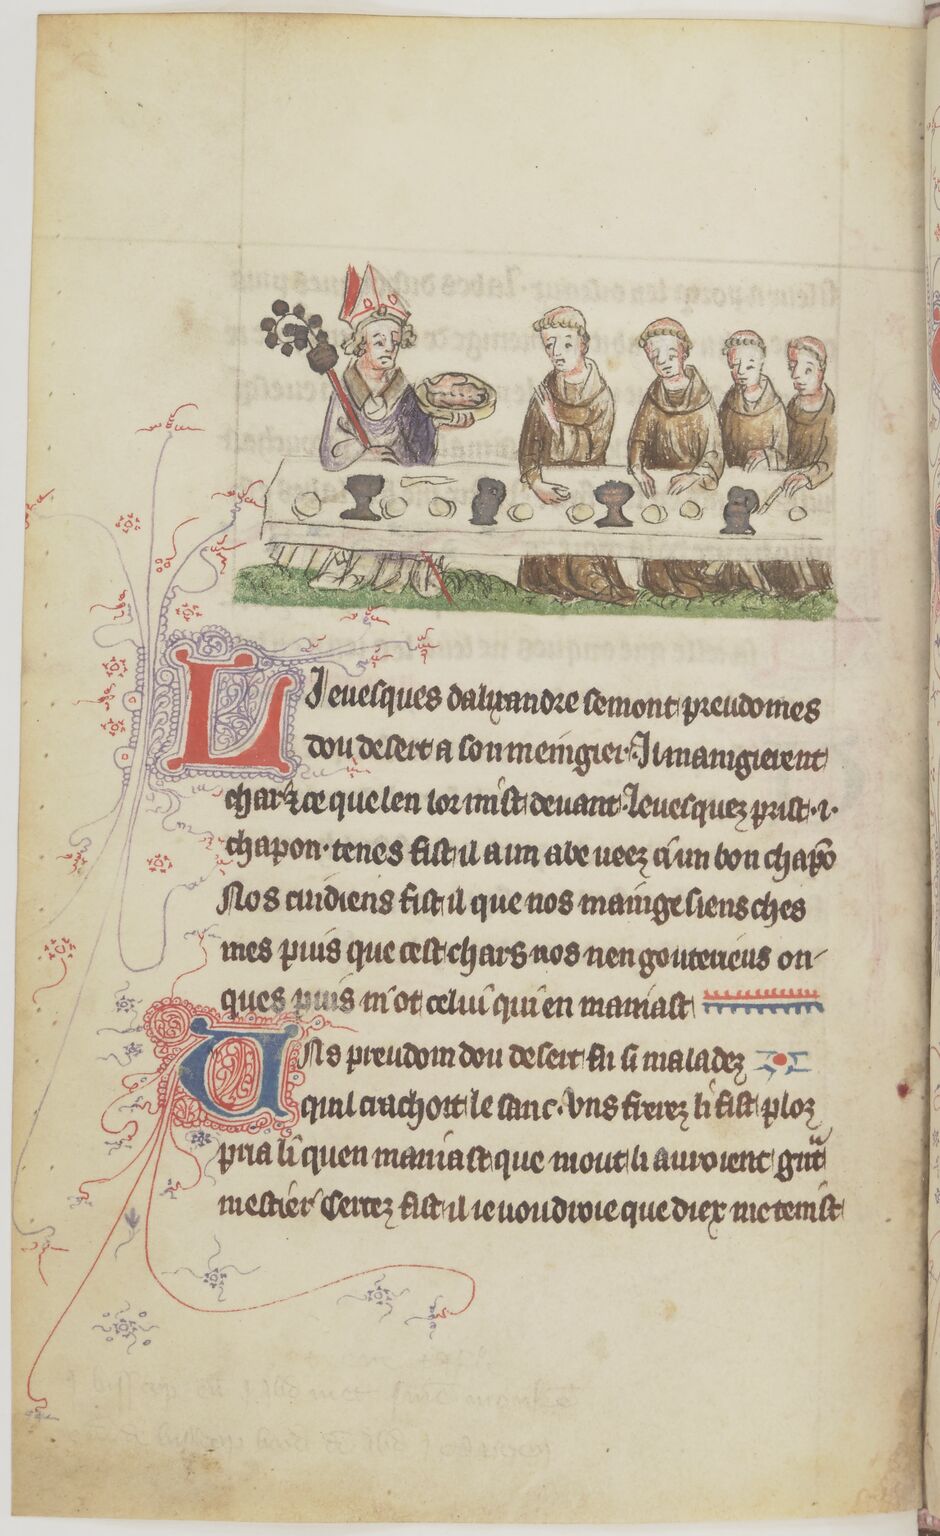 Li evesques dalixandre semont preudomes
dou desert a son meingier. Il maingierent
char ⁊ ce que len lor mist devant. levesquez prist .i.
chapon. tenes fist il a un abe veez ci un bon chapō
Nos cuidiens fist il que nos maingesiens ches
mes puis que cest chars nos nen gouteriens on
ques puis not celui qui en maniast
Uns preudom dou desert fu si maladez
quil crachoit le sanc. Uns frerez li fist ploz
pria li quen maniast que mout li auroient
mestier Certez fist il ie voudroie que diex me tenist